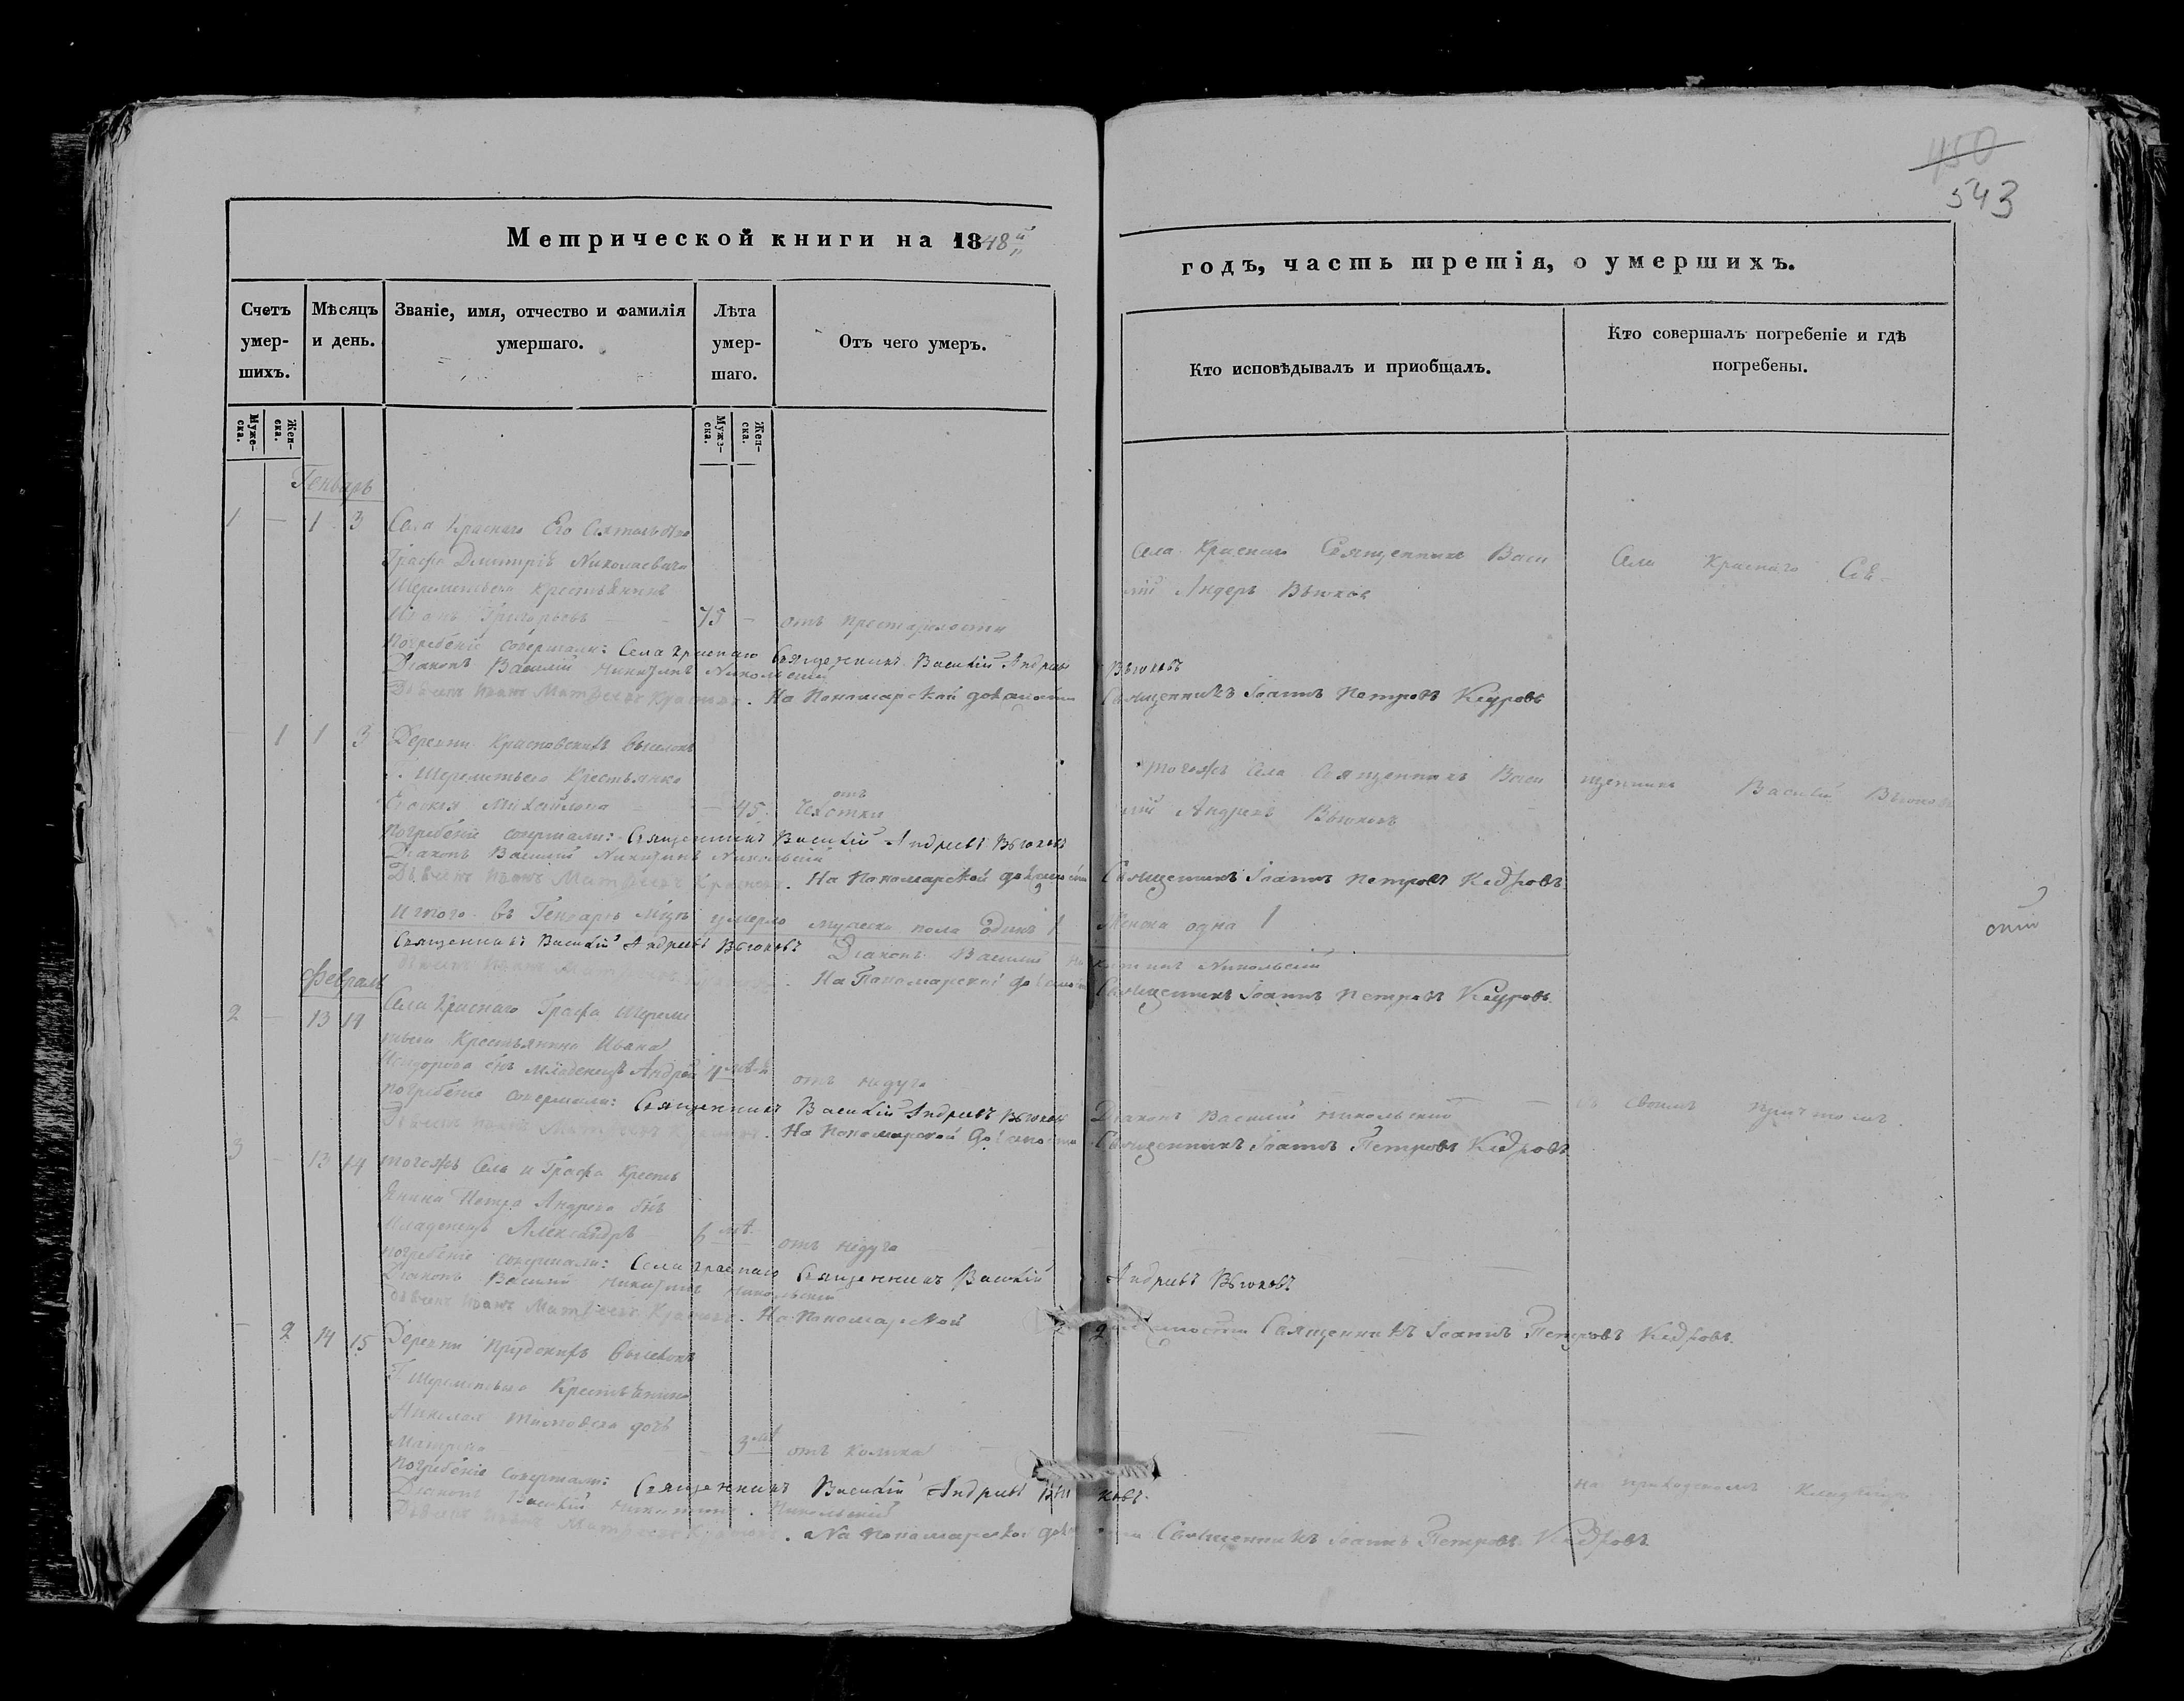 450
543
Метрической книги на 1848й
годъ, часть третія, о умершихъ.
Счетъ умер-шихъ.
Мѣсяцъ и день.
Званіе, имя, отчество и фамилія умершаго.
Лѣта умер-шаго.
Отъ чего умеръ.
Кто исповѣдывалъ и приобщалъ.
Кто совершалъ погребеніе и гдѣ погребены.
Муже-ска.
Жен-ска.
Муже-ска.
Жен-ска.
Генварь
1 — 1 3 Села Краснаго Его Сіятельства
Графа Дмитрія Николаевича
Шереметьева крестьянинъ
Иванъ Григорьевъ — 75 — отъ престарелости
Села Краснаго Священникъ Васи
лій Андреевъ Вьюковъ
Села Краснаго Свя-
Погребеніе совершали: Села Краснаго Священникъ Василій Андреевъ Вьюковъ
Діаконъ Василій Никитинъ Никольскій
Дьячекъ Иванъ Матвеевъ Красновъ. На Пономарской должности Священникъ Іоаннъ Петровъ Кедровъ
— 1 1 3 Деревни Красновскихъ выселокъ
Г. Шереметьева Крестьянка
Михайлова — 45 отъ чахотки
тогожъ Села Священникъ Васи
лій Андреевъ Вьюковъ
щенникъ Василій Вьюковъ
Погребеніе совершали: Священникъ Василій Андреевъ Вьюковъ
Діаконъ Василій Никитинъ Никольскій
Дьячекъ Иванъ Матвеевъ Красновъ. На Пономарской должности Священникъ Іоаннъ Петровъ Кедровъ
Итого въ Генваре м̃цѣ умерло мужеска пола одинъ 1 Женска одна 1
Священникъ Василій Андреевъ Вьюковъ Діаконъ Василій Никитинъ Никольскій
Дьячекъ Иванъ Матвеевъ Красновъ. На Пономарской должности Священникъ Іоаннъ Петровъ Кедровъ
Февраль
2 — 13 14 Села Краснаго Графа Шереме
тьева Крестьянина Ивана
сн̃ъ младенецъ Андрей отъ недуга
Погребеніе совершали: Священникъ Василій Андреевъ Вьюковъ Діаконъ Василій Никольскій
съ своимъ причтомъ.
Дьячекъ Иванъ Матвеевъ Красновъ. На Пономарской должности Священникъ Іоаннъ Петровъ Кедровъ
3 — 13 14 тогожъ Села и Графа Кресть
янина Петра Андреева сн̃ъ
Младенецъ Александръ — отъ недуга
Погребеніе совершали: Села Краснаго Священникъ Василій Андреевъ Вьюковъ
Діаконъ Василій Никитинъ Никольскій
Дьячекъ Иванъ Матвеевъ Красновъ. На Пономарской должности Священникъ Іоаннъ Петровъ Кедровъ.
— 2 14 15 Деревни выселокъ
Г. Шереметьева Крестьянина
Николая дочь
Матрена отъ колики
Погребеніе совершали: Священникъ Василій Андреевъ Вьюковъ.
на приходскомъ кладбище
Діаконъ Василій Никитинъ Никольскій
Дьячекъ Иванъ Матвеевъ Красновъ. На Пономарской должности Священникъ Іоаннъ Петровъ Кедровъ